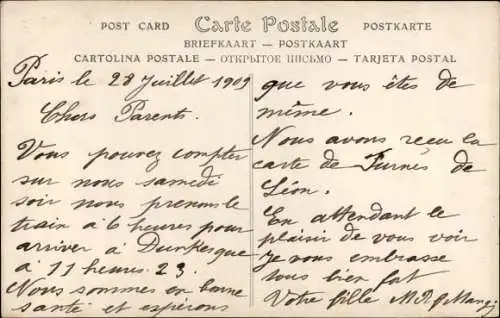 POST CARD Carte Postale POSTKARTE
BRIEFKAART — POSTKAART
CARTOLINA POSTALE — ОТКРЫТОЕ ПИСЬМО — TARJETA POSTAL
Paris le 28 Juillet 1909
Chers Parents.
Vous pouvez compter
sur nous samedi
soir nous prenons le
train à 6 heures pour
arriver à Dunkerque
à 11 heures 23.
Nous sommes en bonne
santé et espérons
que vous êtes de
même.
Nous avons reçu la
carte de Furnes de
Léon.
En attendant le
plaisir de vous voir
Je vous embrasse
tous bien fort
Votre fille